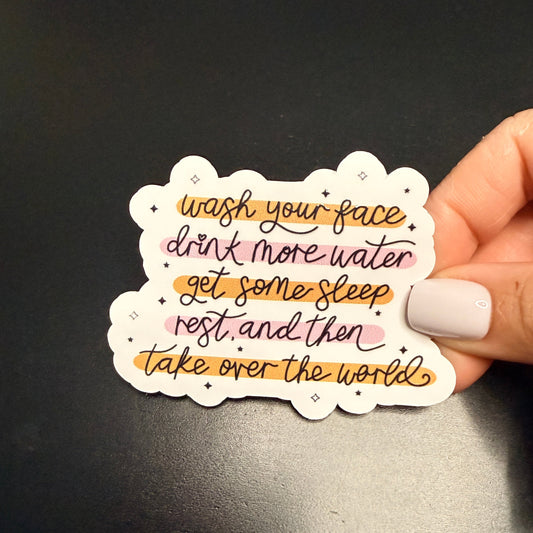 wash your face
drink more water
get some sleep
rest, and then
take over the world